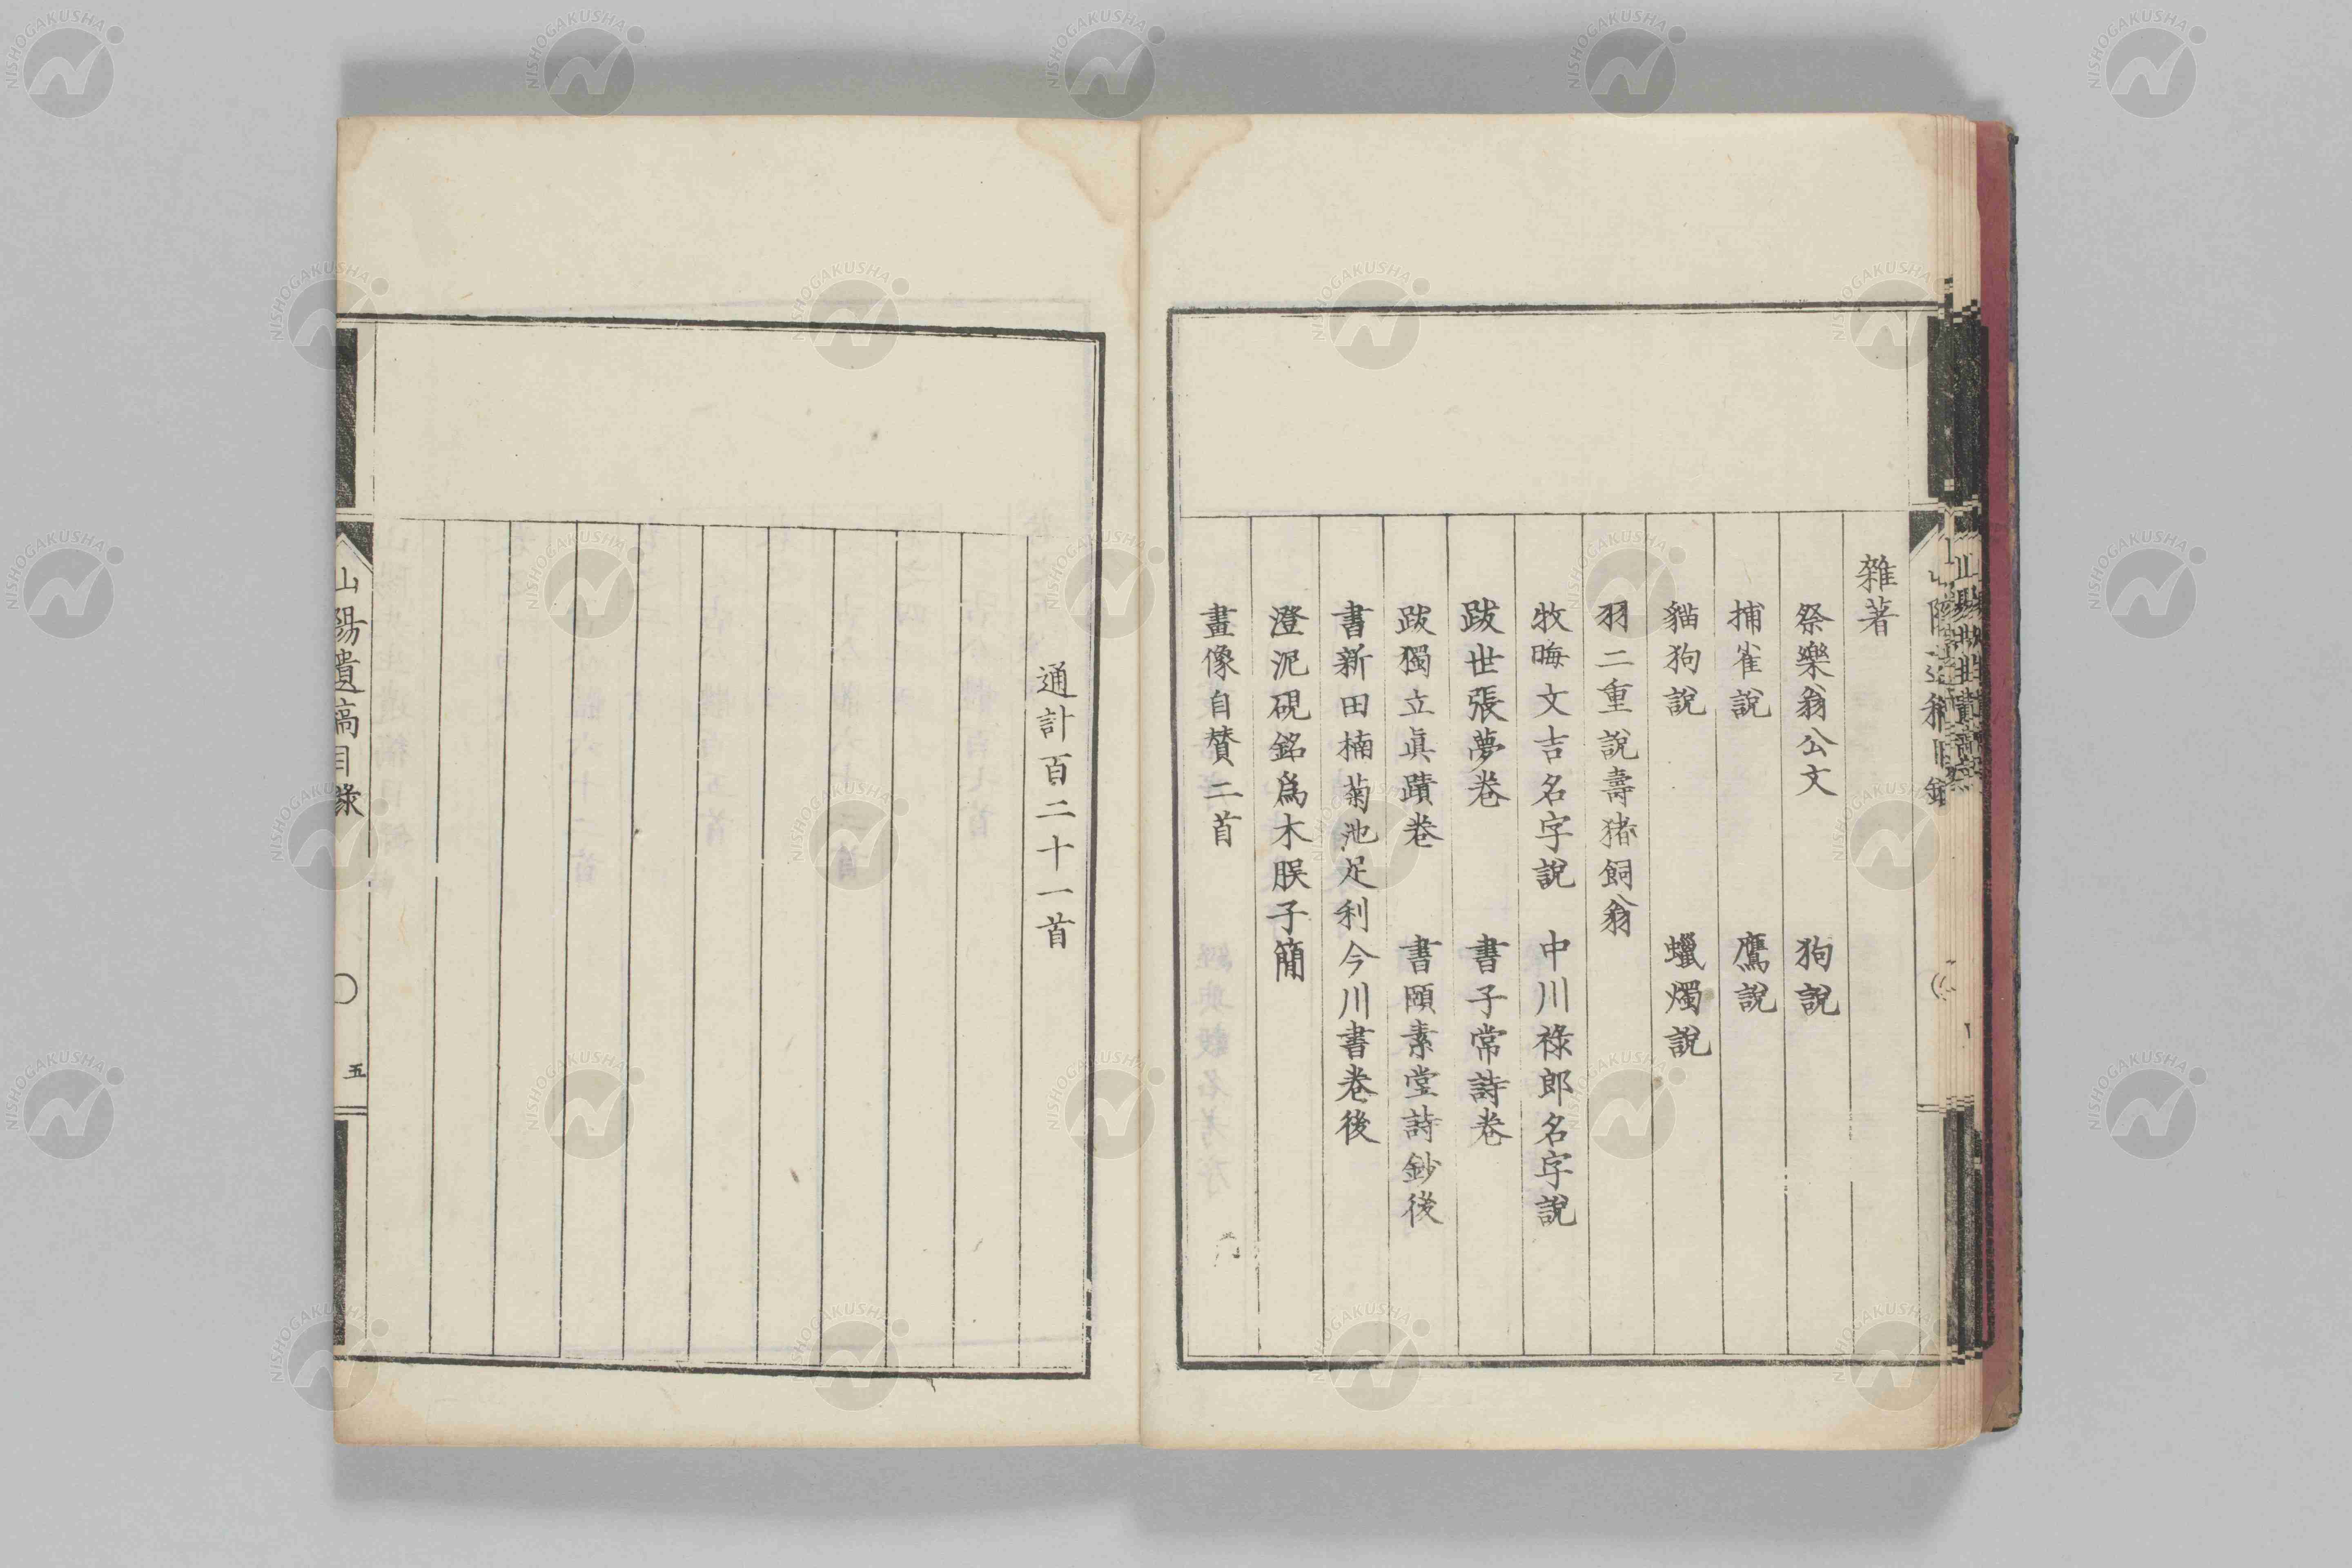 雜著
祭樂翁公文　狗說
捕雀說　鷹說
貓狗說　蠟燭說
羽二重說壽豬飼翁
牧晦文吉名字說　中川祿郎名字說
跋世張夢卷　書子常詩卷
跋獨立眞蹟卷　書頤素堂詩鈔後
書新田楠菊池足利今川書卷後
澄泥硯銘爲木朖子簡
畫像自贊二首
通計百二十一首
山陽遺稿目錄
五